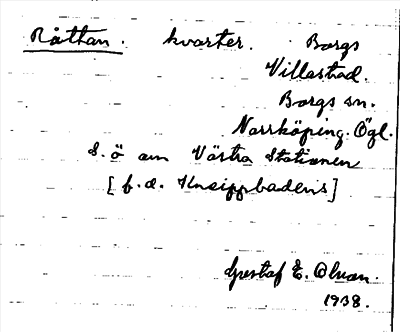 Råttan. kvarter. Borgs
Villastad.
Borgs sn.
Norrköping. Ögl.
S. ö om Västra Stationen
[f.d. Kneippbadens]
Gustaf E. Olsson.
1938.